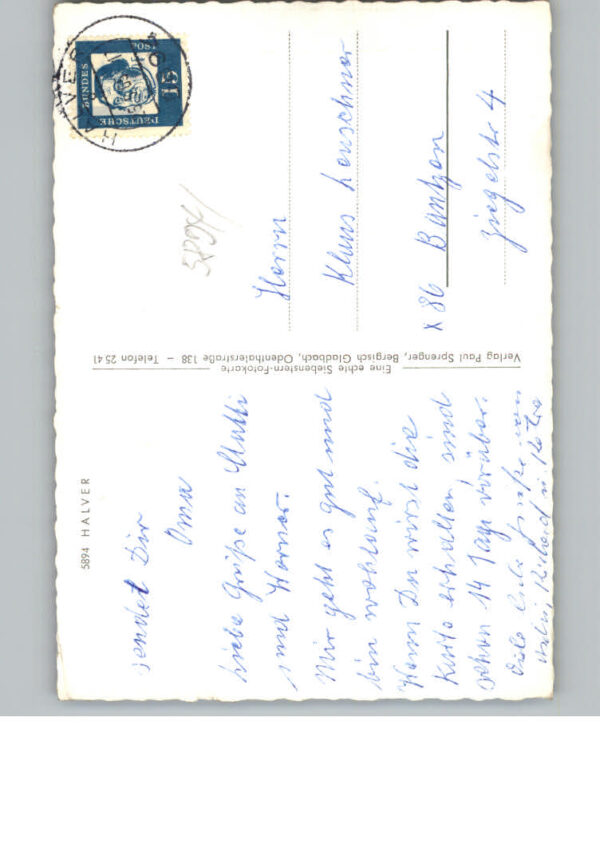 5894 HALVER
sendet Dir
Oma
Liebe Grüße an Mutti
und Werner.
Mir geht es gut und
bin wohlauf.
Wenn Du wirst die
Karte erhalten, sind
schon 14 Tage vorüber.
Viele liebe Grüße von
Eine echte Siebenstern-Fotokarte
Verlag Paul Sprenger, Bergisch Gladbach, Odenthalerstraße 138 – Telefon 2541
DEUTSCHE
BUNDES
POST
15
HALVER
Herrn
Klaus Leuschner
X 86 Bautzen
Ziegelstr 4